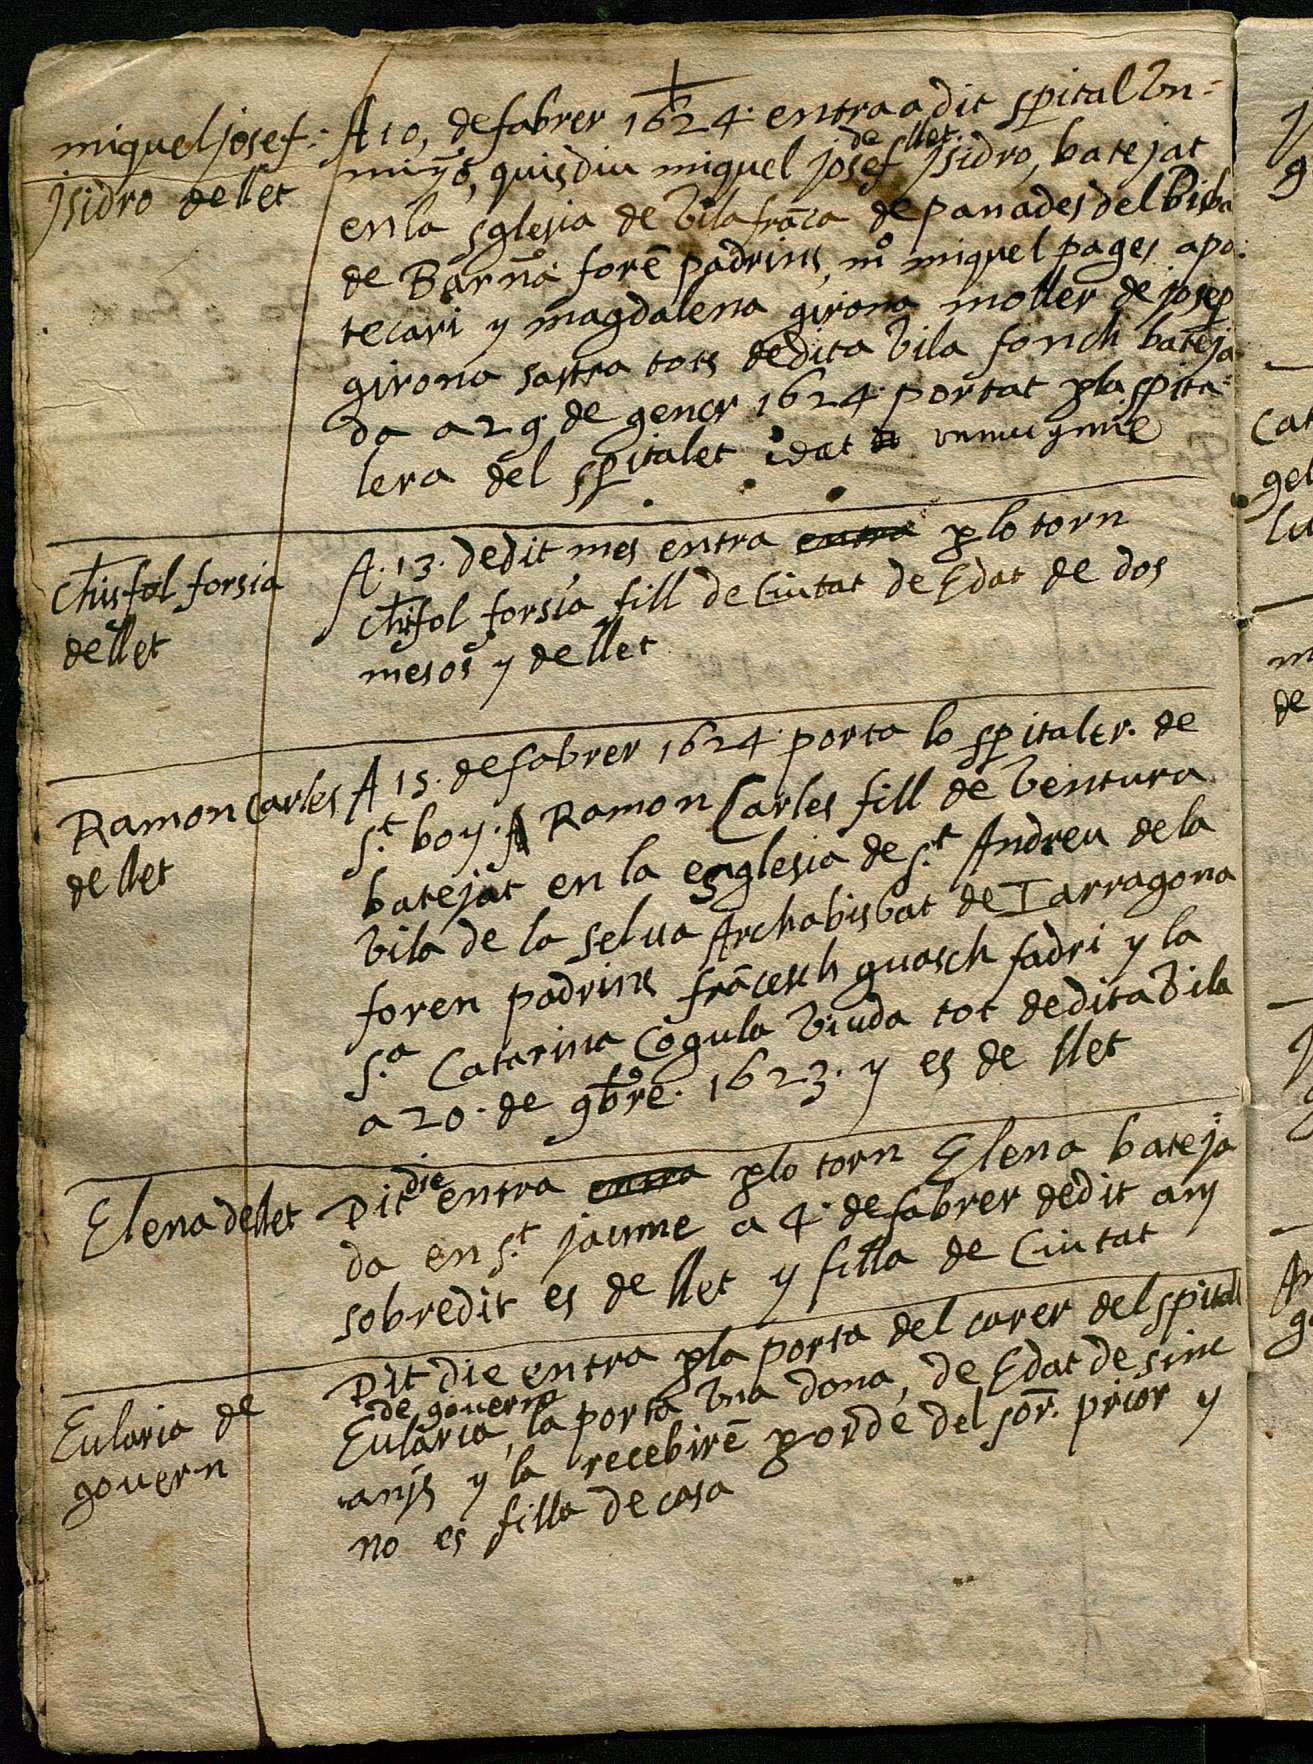 miquel josef
jsidro de llet
A 10, de fabrer 1624 entra a dit spital Vn
minyó, quis diu miquel josef de llet jsidro, batejat
en la sglesia de Vilafrãca de panades del Bisba
de Barña forẽ padrins, mº miquel pages apo
tecari y magdalena girona moller de josep
girona sastra tots de dita Vila fonch bateja
da a 29 de gener 1624 portat p la spita
lera del spitalet edat
Chisfol forsia
de llet
A 13. de dit mes entra entra p lo torn
Chrisfol forsia fill de Ciutat de Edat de dos
mesos y de llet
Ramon Carles
de llet
A 15. de fabrer 1624 porta lo spitaler. de
S.t boy. A Ramon Carles fill de Ventura
batejat en la esglesia de S.t Andreu de la
Vila de la selua Archabisbat de Tarragona
foren padrins frãcesch guasch fadri y la
S.a Catarina Cogula Viuda tot de dita Vila
a 20. de 9bre. 1623. y es de llet
Elena de llet
Dit die entra entra p lo torn Elena bateja
da en S.t jaume a 4. de fabrer de dit any
sobredit es de llet y filla de Ciutat
Eularia de
gouern
Dit die entra p la porta del carer del spital
Eularia de gouern, la porta Vna dona, de Edat de sinc
anys y la recebirẽ p orde del sor. prior y
no es filla de casa
Car
gel
lu
m
de